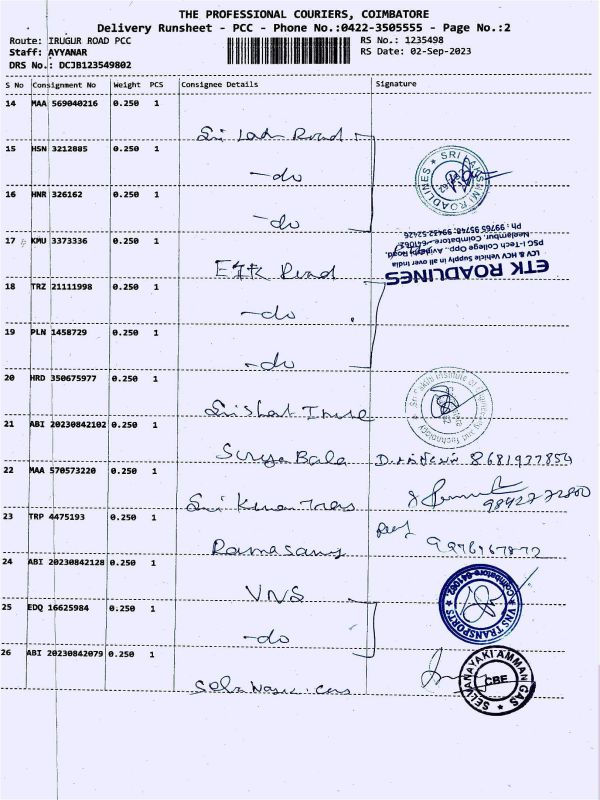 THE PROFESSIONAL COURIERS, COIMBATORE
Delivery Runsheet - PCC - Phone No.:0422-3505555 - Page No.:2
Route: IRUGUR ROAD PCC
RS No.: 1235498
Staff: AYYANAR
RS Date: 02-Sep-2023
DRS No.: DCJB123549802
S No Consignment No Weight PCS Consignee Details Signature
14 MAA 569040216 0.250 1
Road
15 HSN 3212885 0.250 1
-do
SRI LAKSHMI ROADLINES
16 HNR 326162 0.250 1
-do
17 KMU 3373336 0.250 1
ETK Road
ETK ROADLINES
LCV & HCV Vehicle Supply in all over India
PSG I-Tech College Opp., Avinashi Road,
Neelambur, Coimbatore - 641062
18 TRZ 21111998 0.250 1
-do
19 PLN 1458729 0.250 1
-do
20 HRD 350675977 0.250 1
Institute of Engineering and Technology
21 ABI 20230842102 0.250 1
Surya Bala
22 MAA 570573220 0.250 1
Sri
23 TRP 4475193 0.250 1
Ramasamy
24 ABI 20230842128 0.250 1
VNS
VNS TRANSPORTS
Coimbatore-641062
25 EDQ 16625984 0.250 1
-do
26 ABI 20230842079 0.250 1
SELVANAYAKI AMMAN GAS
CBE